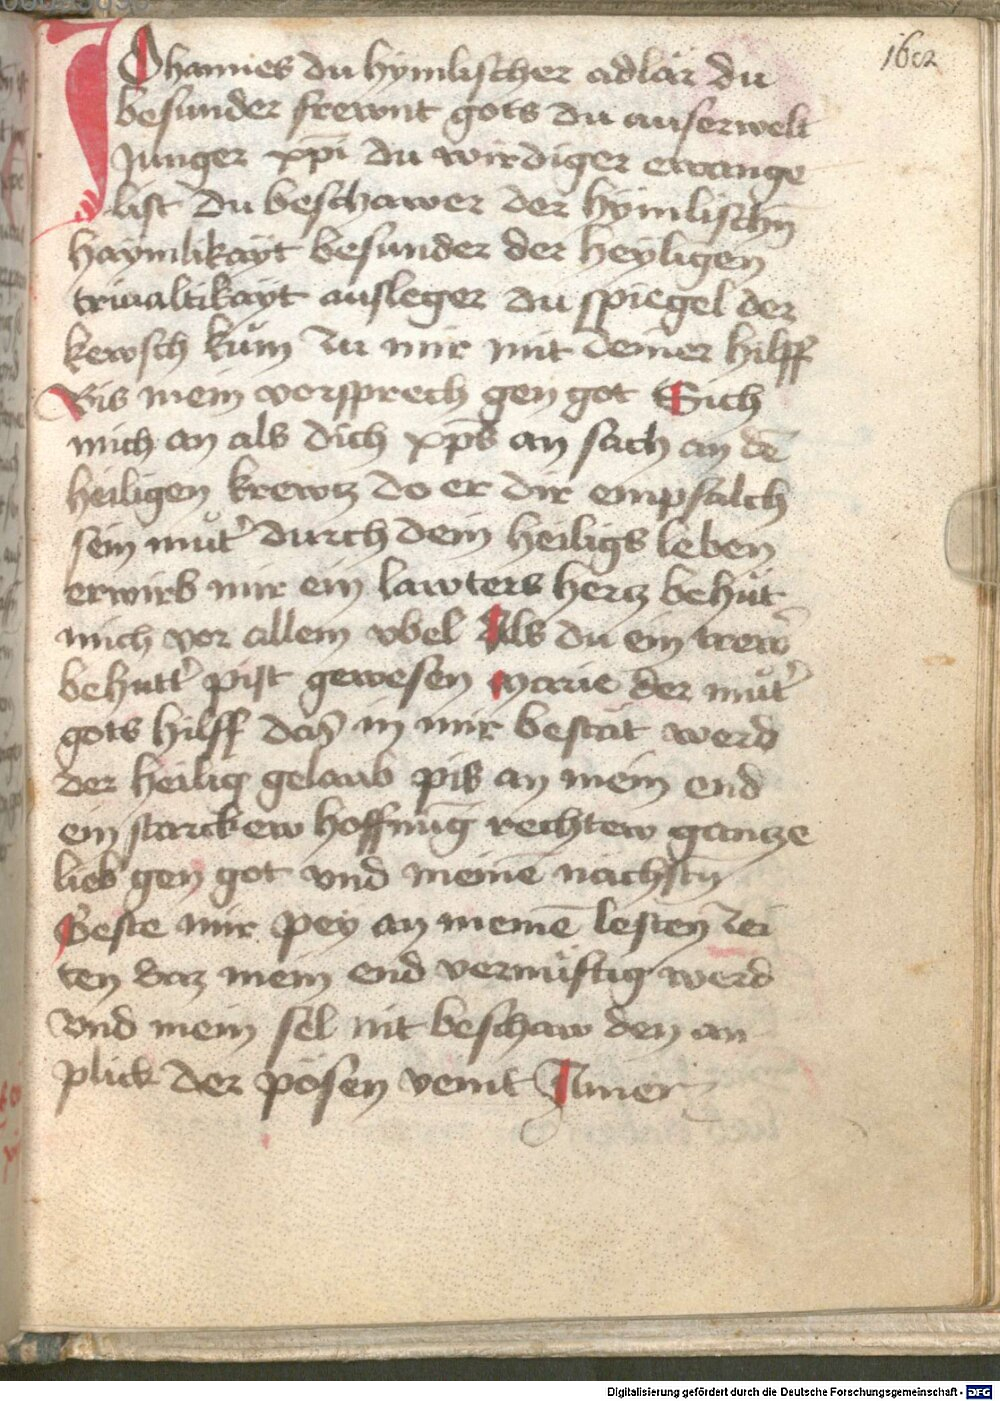 162
Johannes du hymlischer adlar du
besunder frewnt gots du auserwelt
Junger xp̄i du wirdiger ewange
list du beschawer der hymlischn̄
haymlikayt besunder der heyligen
triualtikayt ausleger du spiegel der
kewsch kům zu mir mit deiner hilff
Bis mein vorsprech gen got Sich
mich an als dich xp̄s an sach an dē
heiligen krewtz do er dir empfalch
sein můt' durch dein heiligs leben
erwirb mir ein lawters hertz behüt
mich vor allem vbel Als du ein trew'
behutt' pist gewesen Marie der můt'
gots hilff das in mir bestät werd
der heilig gelaub pis an mein end
ein starckew hoffnūg rechtew gantze
lieb gen got vnd meinē nächstn̄
Beste mir pey an meinē lesten zei
ten daz mein end vernüftig werd
Vnd mein sel nit beschaw den an
plick der pösen veint Amen
Digitalisierung gefördert durch die Deutsche Forschungsgemeinschaft - DFG